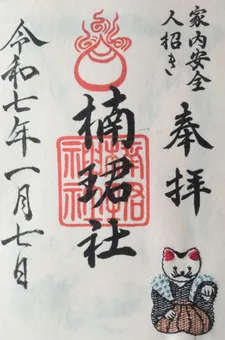 家内安全
人招き
奉拝
楠珺社
令和七年一月七日